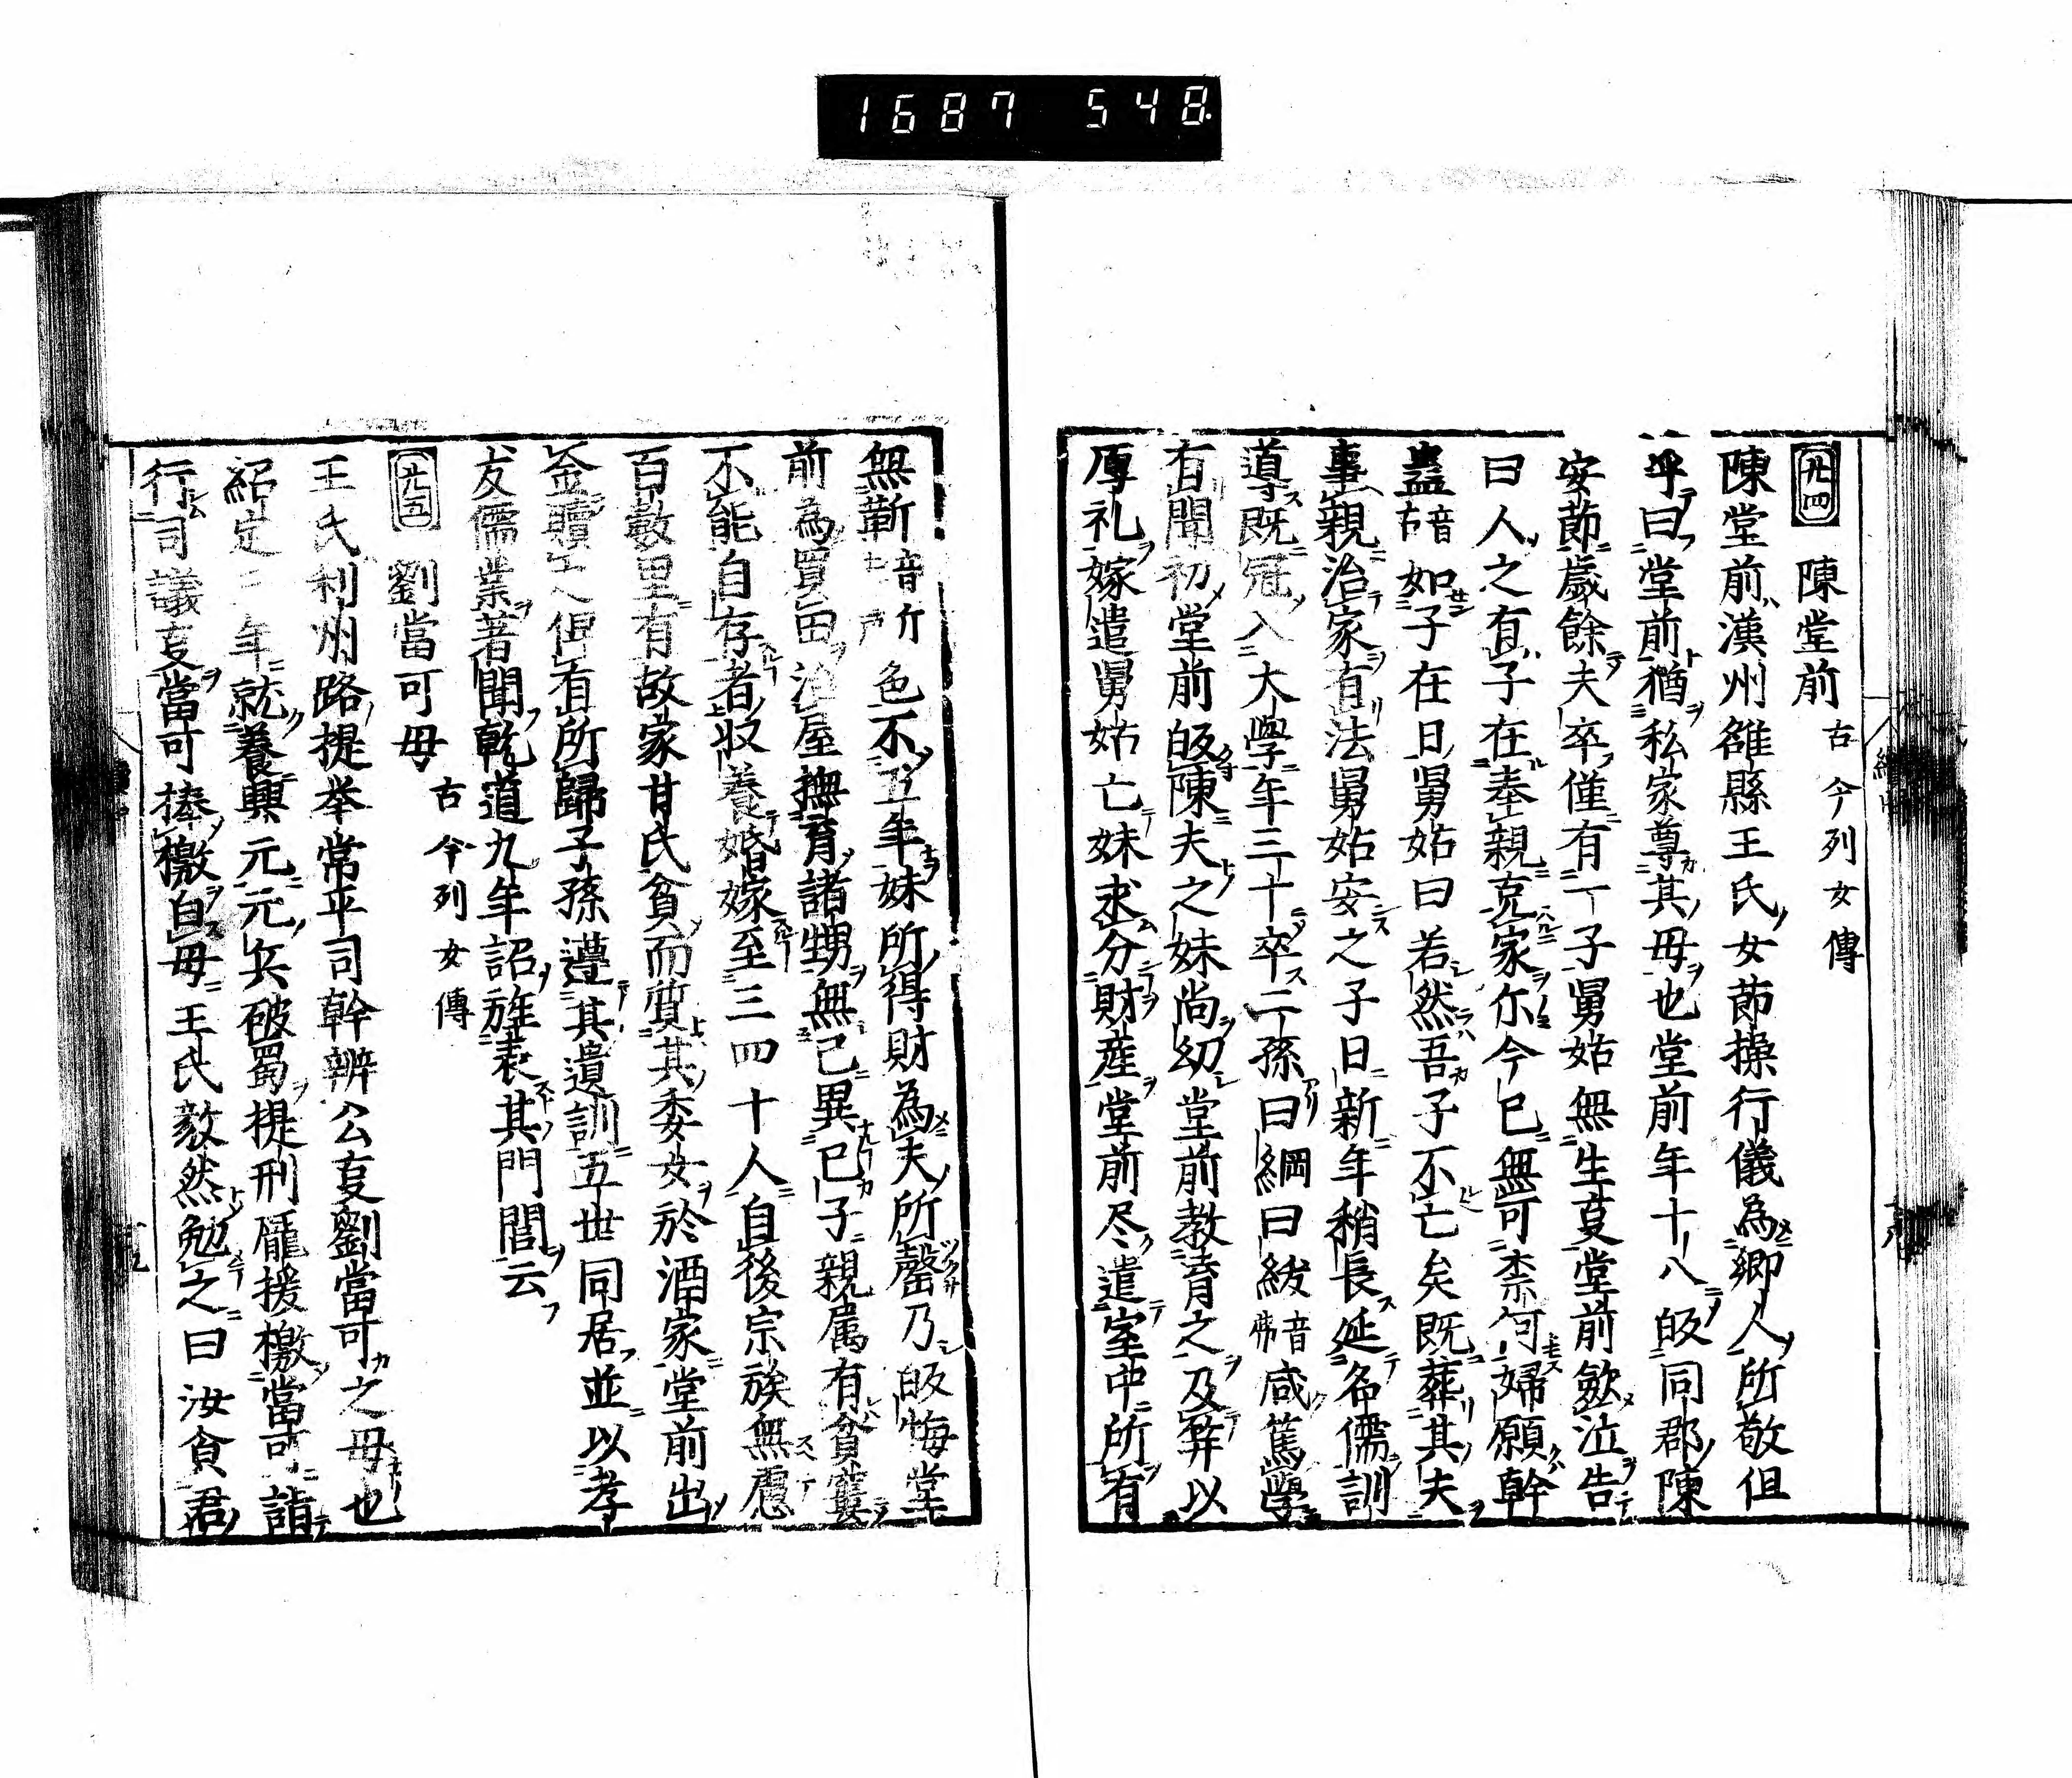 1687 548.
廿四 陳堂前 古今列女傳
陳堂前漢州雒縣王氏女莭操行儀為郷人所敬但
呼曰堂前猶私家尊其母也堂前年十八皈同郡陳
安莭歳餘夫卒僅有一子舅姑無生叓堂前歛泣告
曰人之有子在奉親克家尓今已無可柰何婦願幹
蠱音古如子在日舅姑曰若然吾子不亡矣既葬其夫
事親治家有法舅姑安之子日新年稍長延名儒訓
導既冠入大學年三十卒二孫曰綱曰紱音弗咸篤學
有聞初堂前皈陳夫之妹尚幼堂前教育之及笄以
厚礼嫁遣舅姑亡妹求分財産堂前尽遣室中所有
無靳色不五年妹所得財為夫所罄乃皈悔堂
前為買田治屋撫育諸甥無己異已子親属有貧窶
不能自存者収養婚嫁至三四十人自後宗族無慮
百數里有故家甘氏貧而質其委女於酒家堂前出
金贖之俾有所歸子孫遵其遺訓五世同居並以孝
友儒業著聞乾道九年詔旌表其門閭云
廿五 劉當可母 古今列女傳
王氏利州路提举常平司幹辨公叓劉當可之母也
紹定三年就養興元元兵破蜀提刑龐援檄當可詣
行司議叓當可捧檄白母王氏毅然勉之曰汝食君